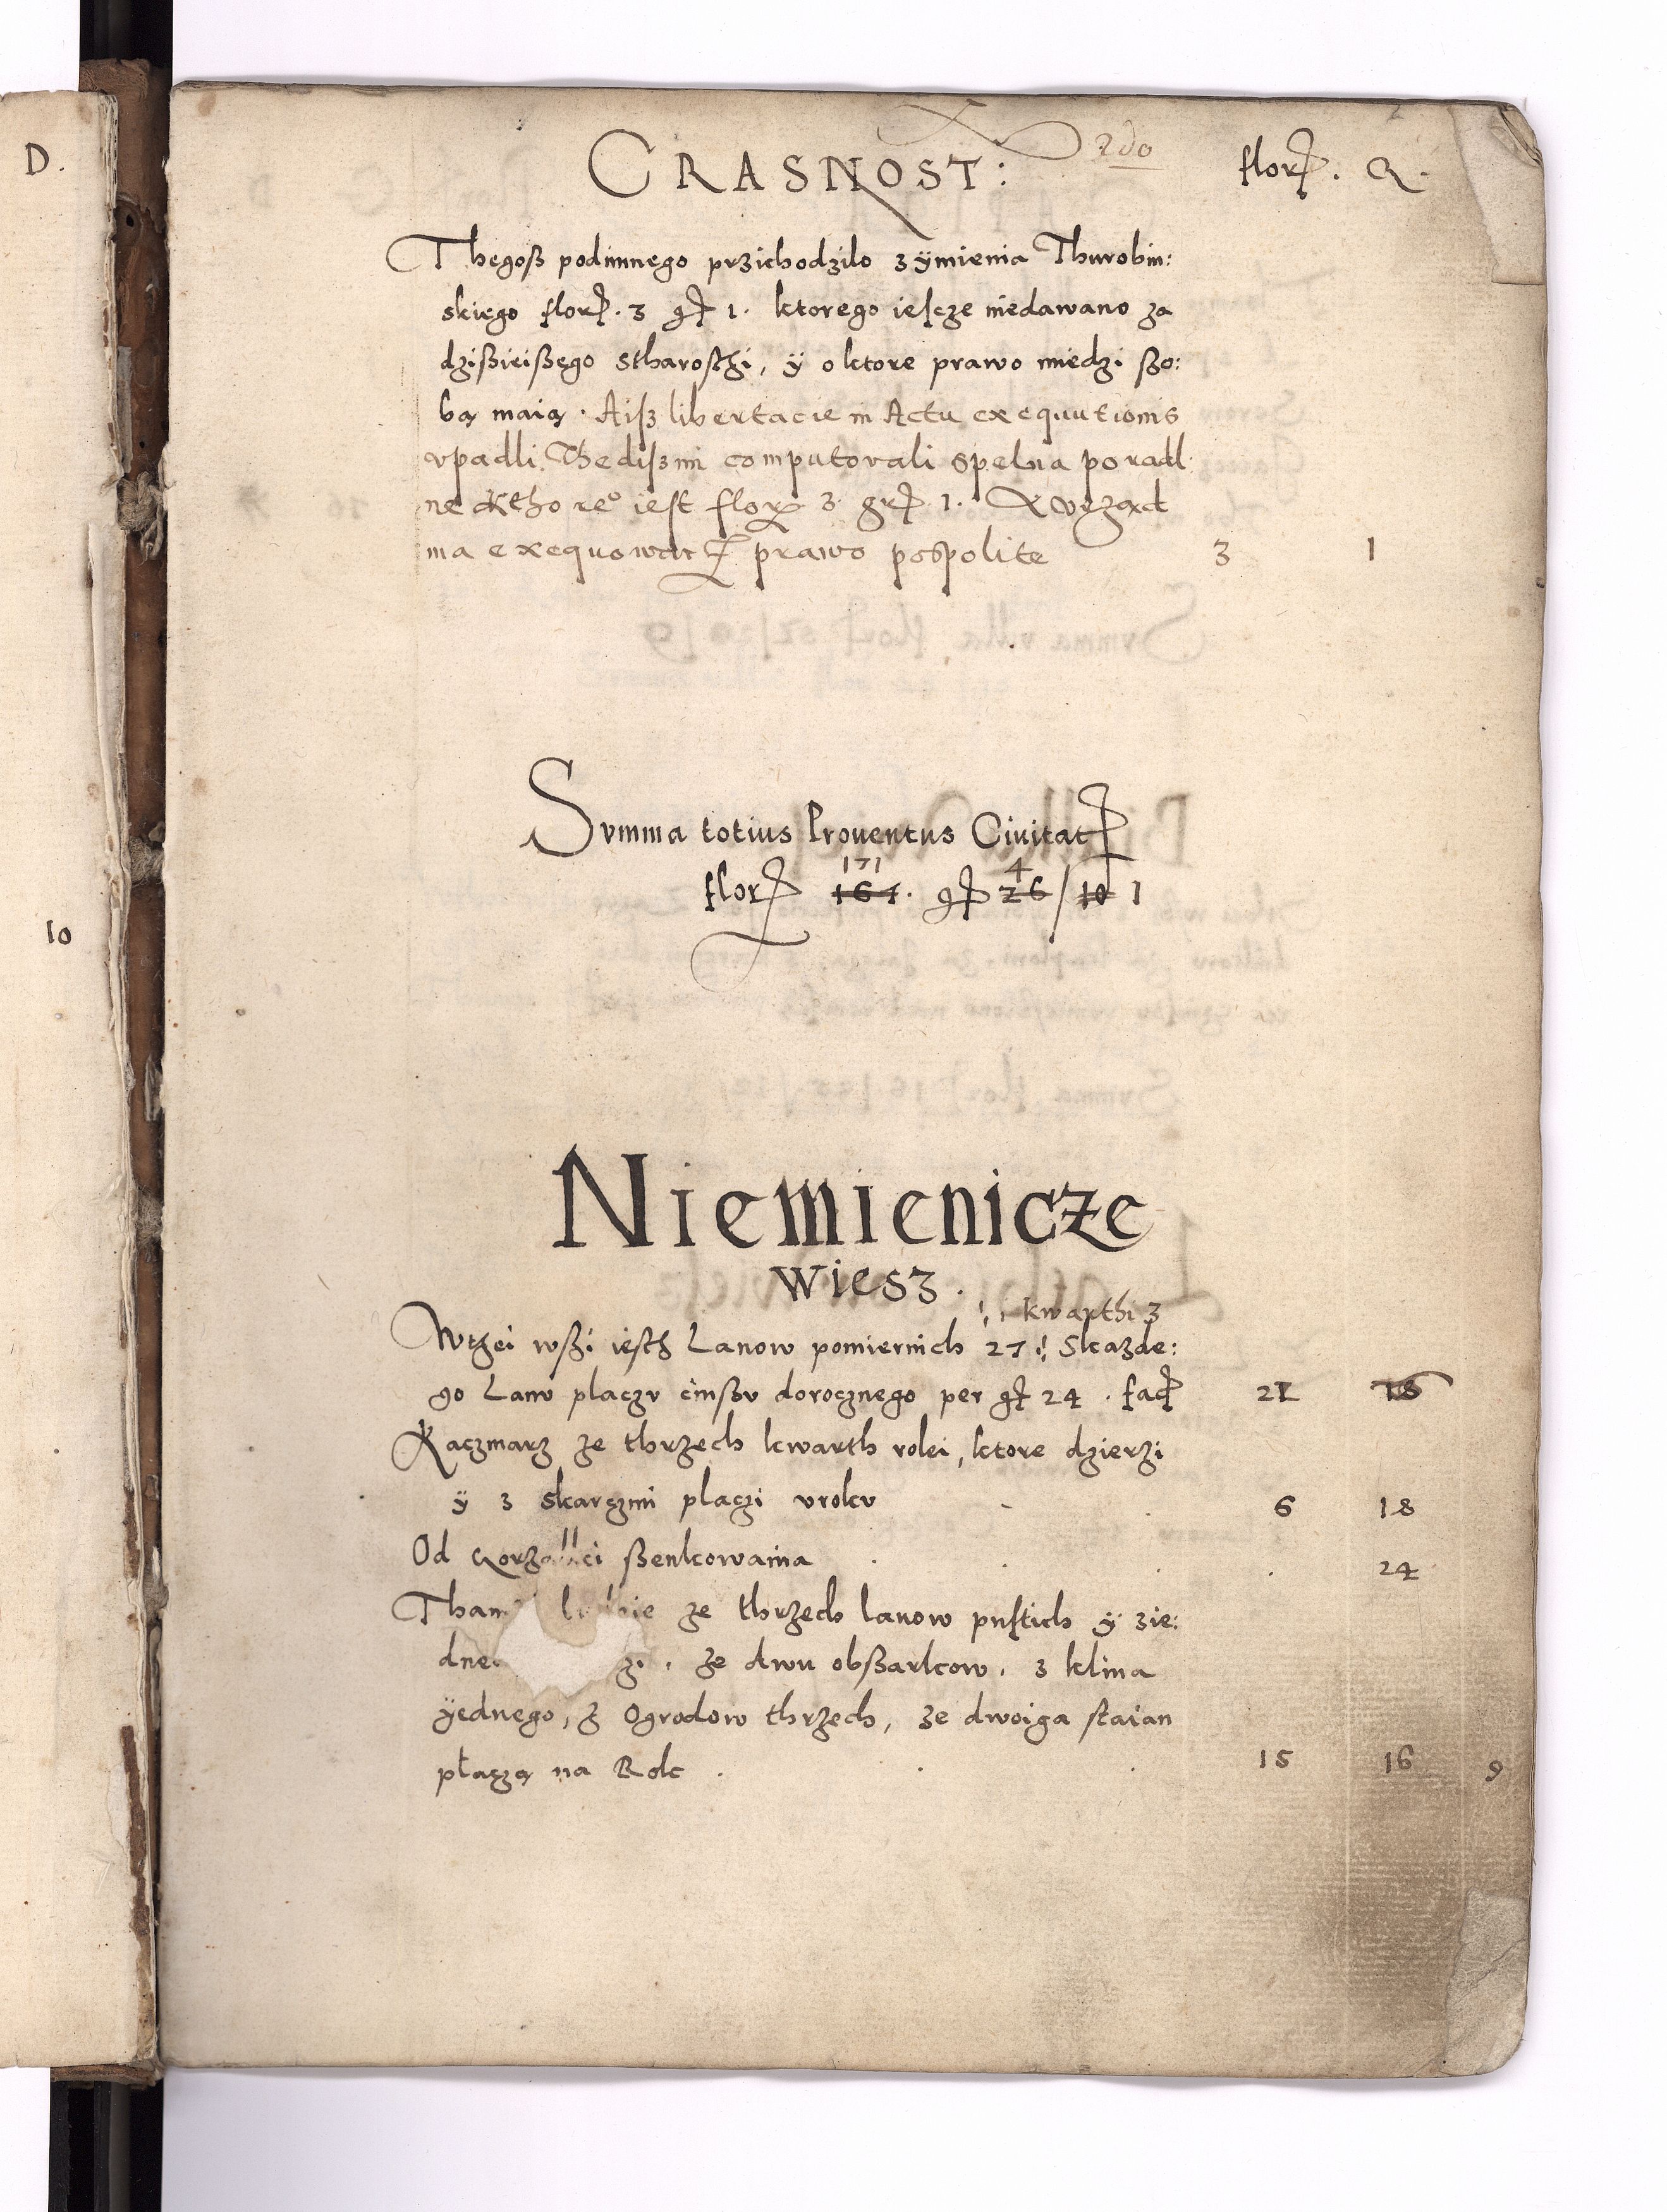 D.
CRASNOST:
2do
flor. Q.
Thegoß podimnego przichodzilo z ÿmienia Thurobin:
skiego flor. 3 g 1. ktorego iescze niedawano za
dzißieißego stharosthi, ÿ o ktore prawo miedzi ßo:
bą maią. Aisz libertacie in Actu exequutionis
vpadli. Thedi szmi computovali spelna poradl
ne kthoreo iest flor 3 gr 1. A vrząd
ma exequowac prawo pospolite 3 1
Svmma totius Proventus Civitat
171 4
flor 161. g 26 / 10 1
10
Niemienicze
wiesz.
kwarthi 3
Wthei wßi iesth Lanow pomiernich 27 Skazde:
go Lanv placzv cinßv dorocznego per g 24. fac 21 18
Kaczmarz ze thrzech kwarth rolei, ktore dzierzi
ÿ z skarczmi placzi vrokv 6 18
Od Gorzalki ßenkowania 24
Tham ludzie ze thrzech lanow pustich ÿ zie:
dne zi. ze dwu obßarkow. z klina
ÿednego, z Ogrodow thrzech, ze dwoiga staian
płaczą na Rok. 15 16 9